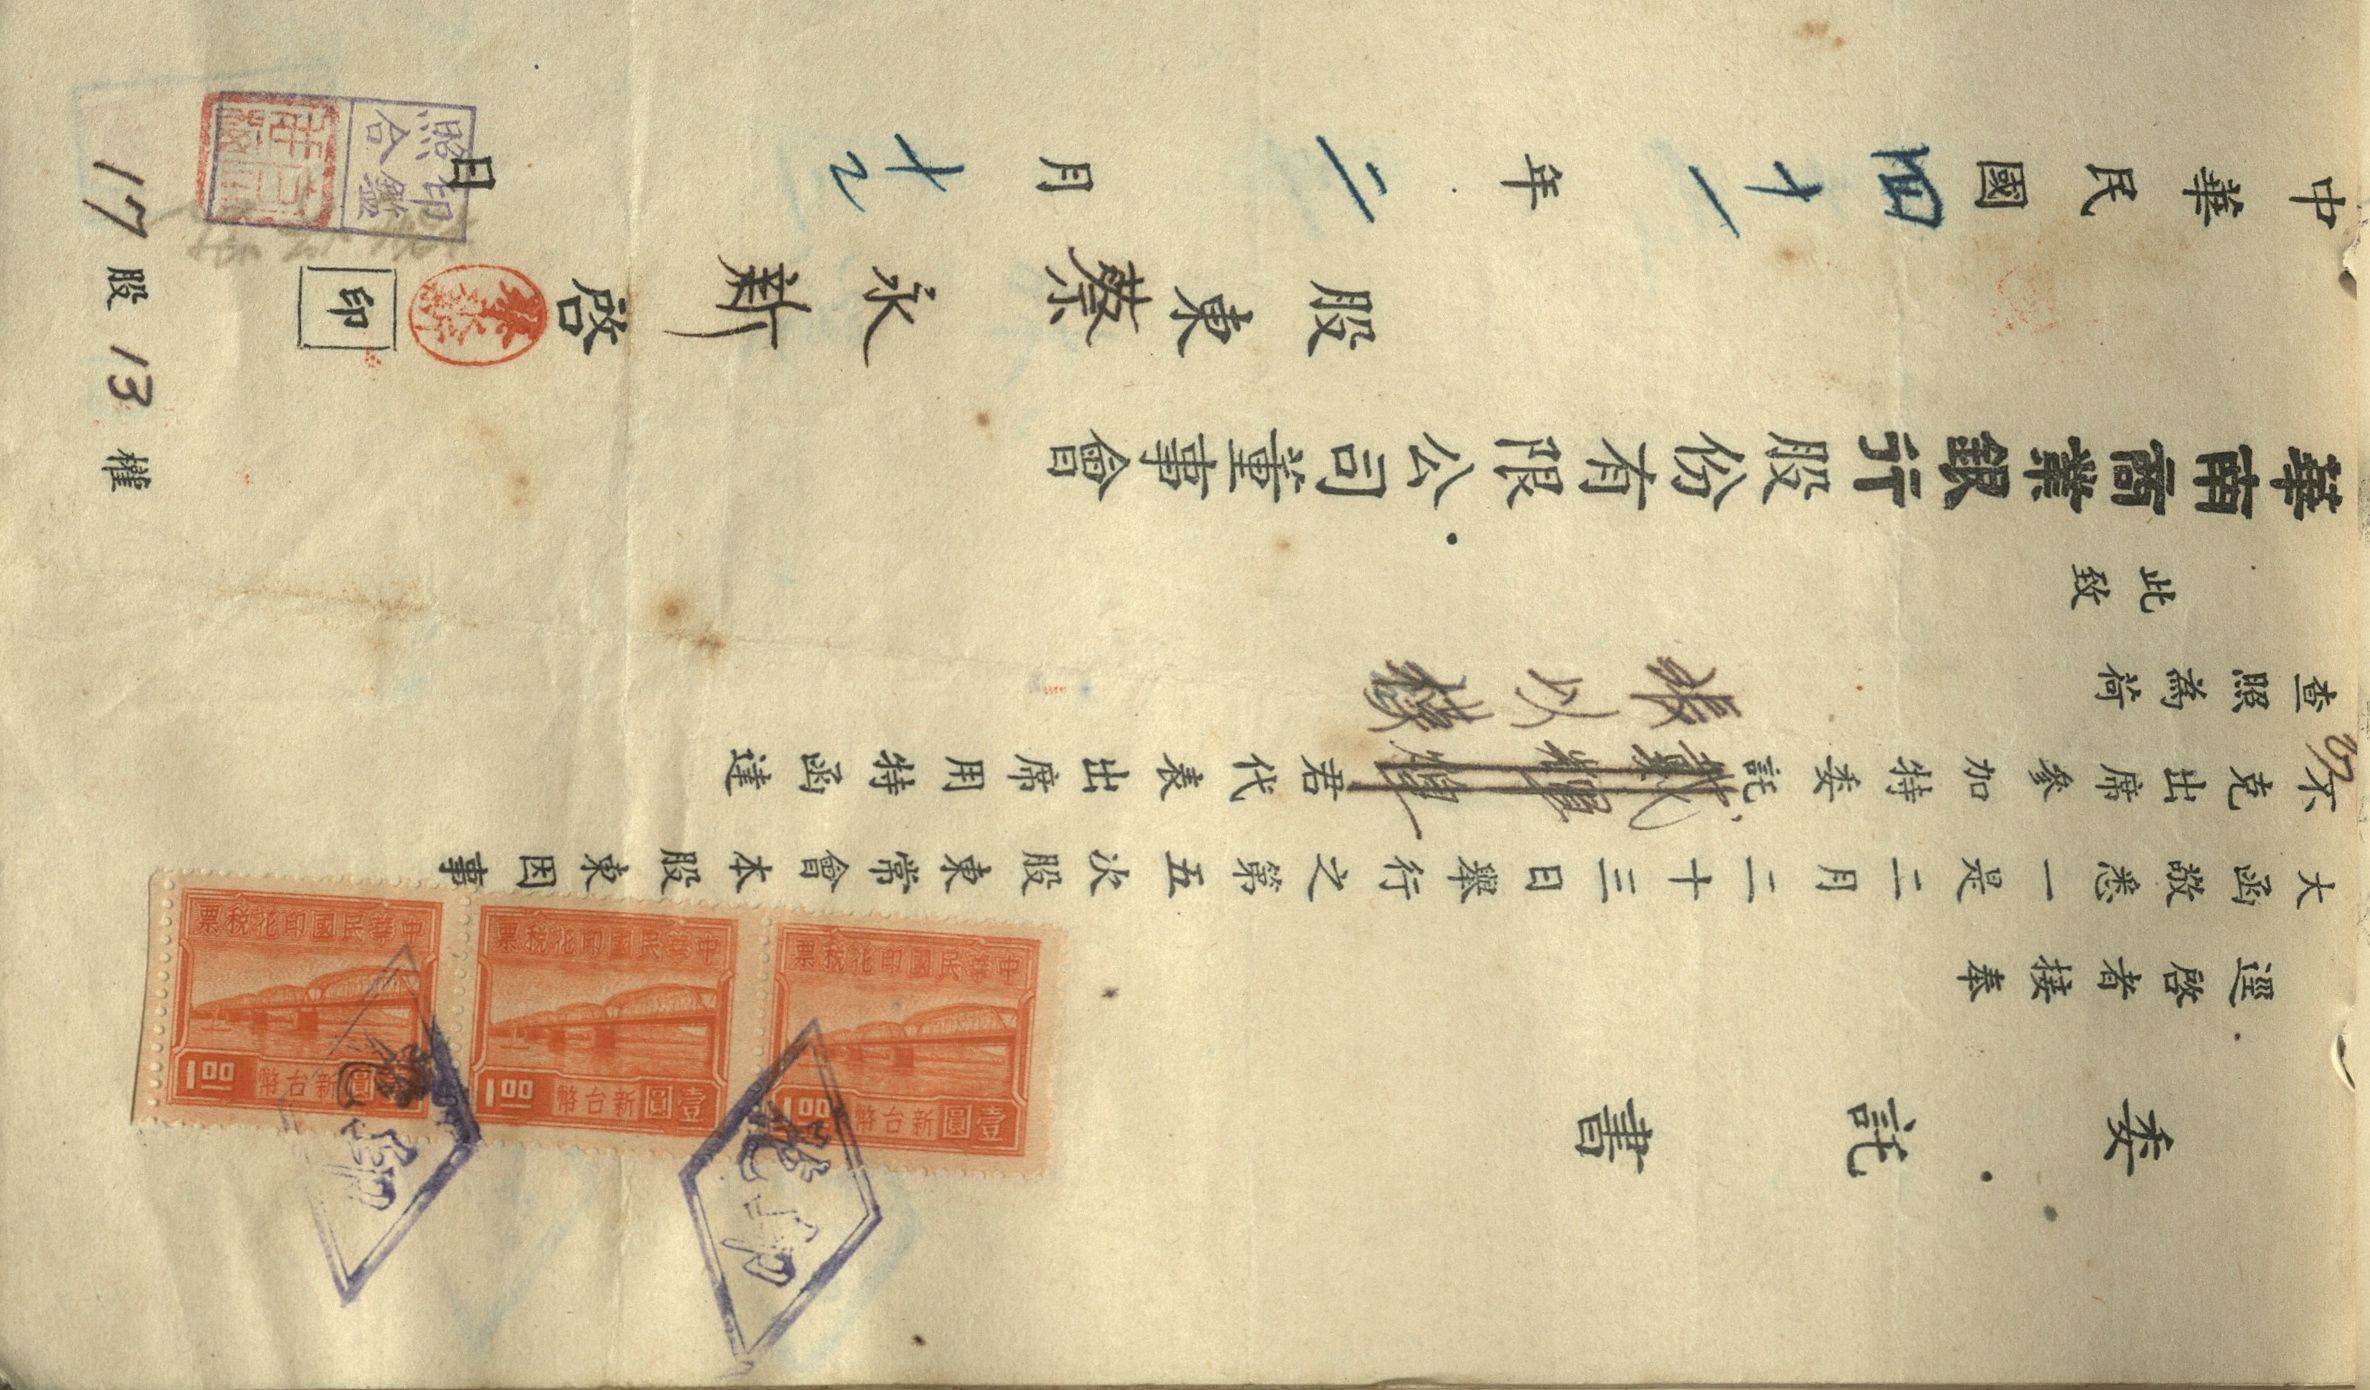 委託書
逕啓者接奉
大函敬悉一是二月二十三日舉行之第五次股東常會本股東因事
不克出席參加特委託君代表出席用特函達
張以
查照為荷
此致
華南商業銀行股份有限公司董事會
股東蔡永新啓 印
中華民國四十一年二月十日
印鑑照合
17股13權
中華民國印花稅票
壹圓新台幣 1.00
中華民國印花稅票
壹圓新台幣 1.00
中華民國印花稅票
圓新台幣 1.00